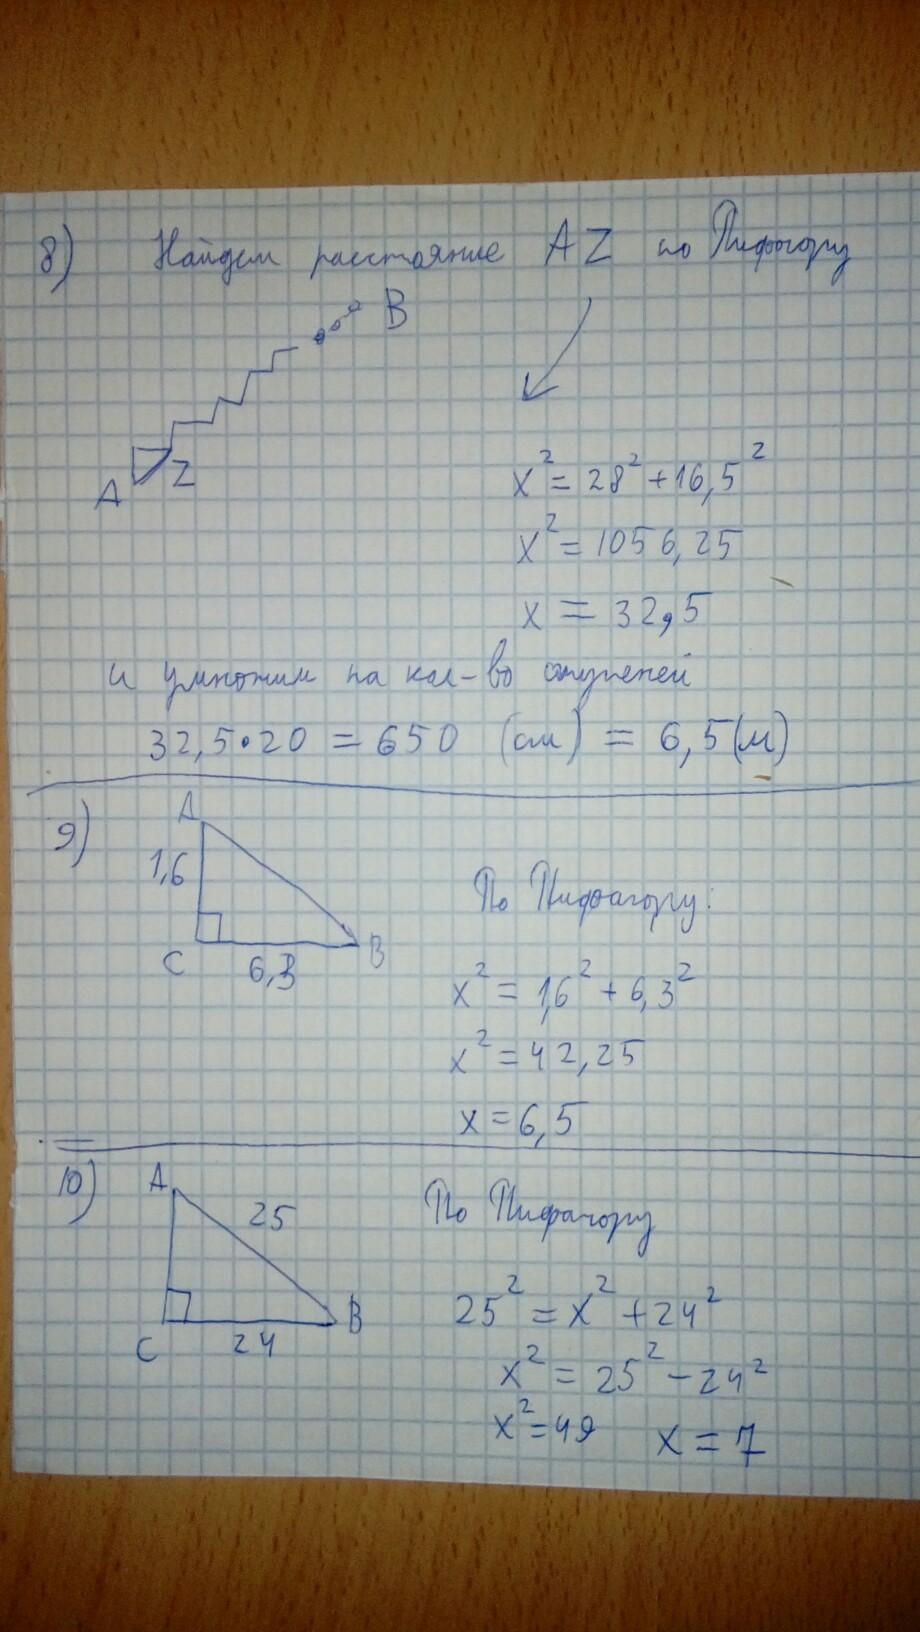 8) Найдем расстояние AZ по Пифагору
B
A Z
x² = 28² + 16,5²
x² = 1056,25
x = 32,5
и умножим на кол-во ступеней
32,5•20 = 650 (см) = 6,5(м)
9) A
1,6
C 6,3 B
По Пифагору:
x² = 1,6² + 6,3²
x² = 42,25
x = 6,5
10) A
25
C 24 B
По Пифагору
25² = x² + 24²
x² = 25² − 24²
x² = 49 x = 7